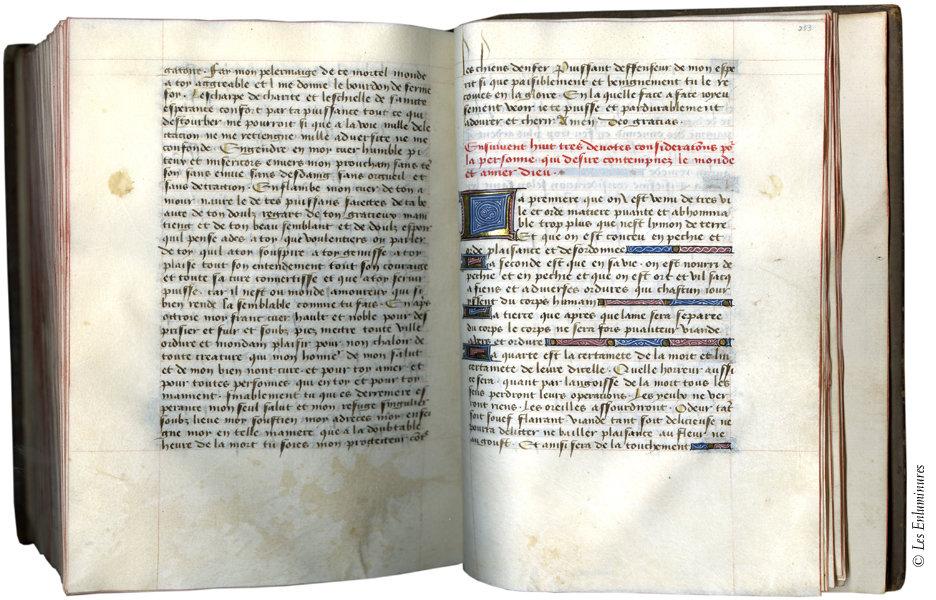 garoir. Fay mon pelerinaige de ce mortel monde
a toy aggreable et l me donne le bourdon de ferme
foy. Lescharpe de charite et leschielle de saincte
esperance confort par ta puissance tout ce qui
destourber me pourroit si que a la voie nulle dele
ctacion ne me retiengne nulle adversite ne me
confonde. Engendre en moy cuer humble pi
teux et misericors envers mon prouchain sans
son sans envie sans desdaing sans orgueil et
sans detraction. Enflambe mon cuer de ton a
mour navre le de tes plaisans facettes de ta be
aute de ton doulz regart de ton gracieux main
tieng et de ton beau semblant et de doulz espoir
quil pense adez a toy que voulentiers oy parler
de toy quil a toy souspire a toy gemisse a toy
plaise tout son entendement tout son couraige
et toute sa cure convertisse et que a toy servir
puisse. car il nest ou monde amoureux qui si
bien rende la semblable comme tu fais. En aps
ottroie moy franc cuer hault et noble pour des
prisier et fuir et soubz piez mettre toute ville
ordure et mondain plaisir pour non chaloir de
toute creature qui mon honneur de mon salut
et de mon bien nont cure. et pour toy amer et
pour toutes personnes qui en toy et pour toy
mainent. finablement tu qui es derreniere es
perance mon seul salut et mon refuge singulier
soubz lieue moy soustien moy adreces moy ensei
gne moy en telle maniere que a la doubtable
heure de la mort tu soies mon protecteur contre
253
les chiens denfer Puissant deffenseur de mon espe
rit si que paisiblement et benignement tu le re
coives en ta gloire. En la quelle face a face ioieu
sement veoir ie te puisse et pardurablement
adourer et cherir Amen. Deo gracias.
Ensuivent huit tres devotes consideratons por
la personne qui desire contempnez le monde
et amer dieu.
La premiere que on est venu de tres vi
le et orde matiere puante et abhomina
ble trop plus que nest lymon de terre
Et que on est conceu en pechie et
orde plaisance et desordonnee
La seconde est que en sa vie. on est nourri de
pechie et en pechie et que on est ort et vil sacq
a fiens et a diverses ordures qui chascun iour
yssent du corps humain
La tierce que apres que lame sera separee
du corps le corps ne sera fors puanteur viande
a vers et ordure
La quarte est la certainete de la mort et lin
certainete de leure dicelle. Quelle horreur ausse
ce sera. quant par langoisse de la mort tous les
sens perdront leurs operations. Les yeulx ne ver
ront riens. Les oreilles assourdiront. Odeur tant
soit souef flairant viande tant soit delicieuse ne
pourra deliter ne bailler plaisance au fleur ne
au goust. Et ainsi sera de la touchement
© Les Enluminures